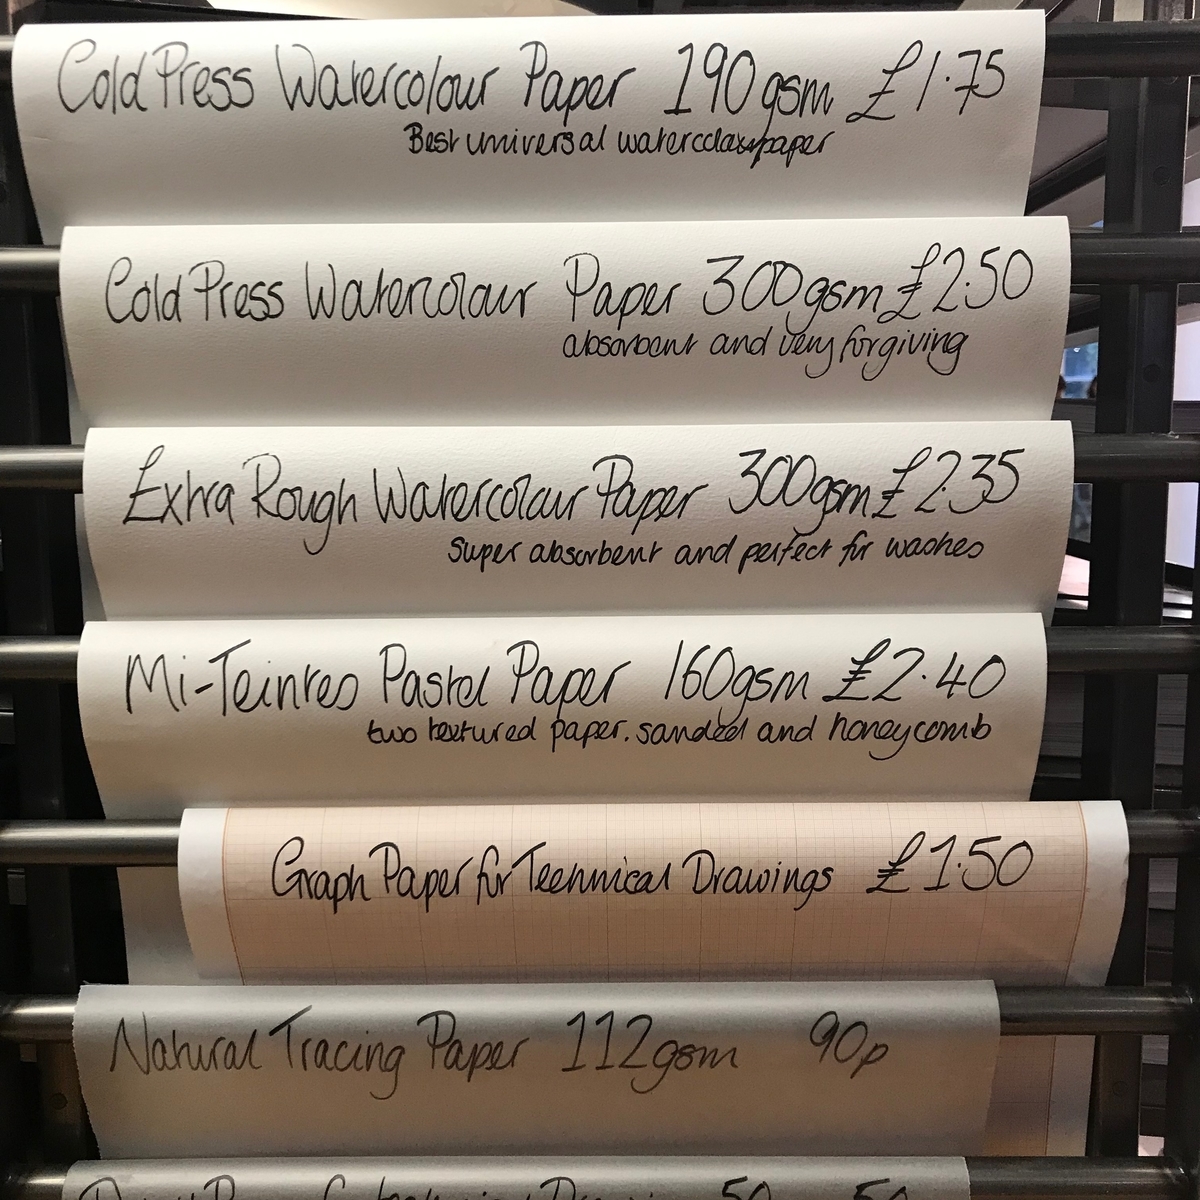 Cold Press Watercolour Paper 190gsm £1.75
Best universal watercolour paper
Cold Press Watercolour Paper 300gsm £2.50
absorbent and very forgiving
Extra Rough Watercolour Paper 300gsm £2.35
Super absorbent and perfect for washes
Mi-Teintes Pastel Paper 160gsm £2.40
two textured paper. sanded and honeycomb
Graph Paper for Technical Drawings £1.50
Natural Tracing Paper 112gsm 90p